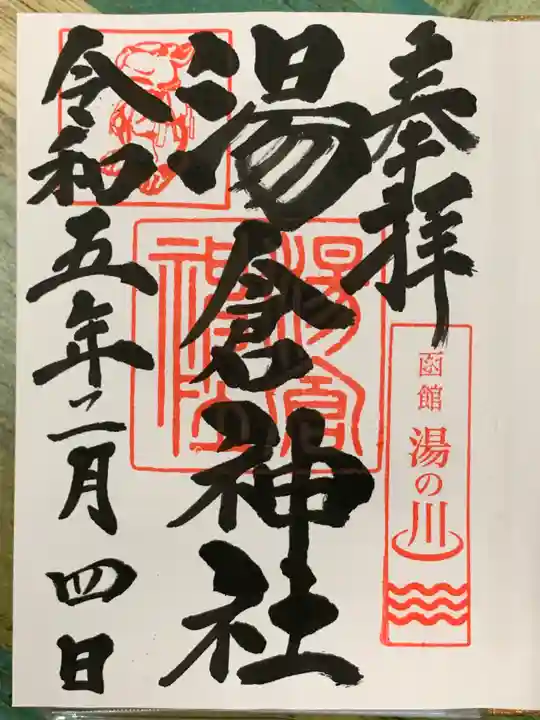 奉拝
函館 湯の川
湯倉神社
湯倉神社
令和五年二月四日